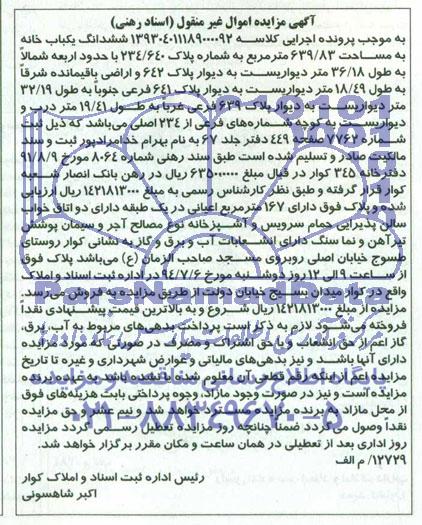 آگهی مزایده اموال غیر منقول (اسناد رهنی)
به موجب پرونده اجرایی کلاسه ۱۳۹۳۰۴۰۱۱۱۸۹۰۰۰۰۹۲ ششدانگ یکباب خانه
به مساحت ۶۳۹/۸۳ مترمربع به شماره پلاک ۲۳۴/۶۴۰ با حدود اربعه شمالاً
به طول ۳۶/۱۸ متر دیواریست به دیوار پلاک ۶۴۲ و اراضی باقیمانده شرقاً
به طول ۱۸/۴۹ متر دیواریست به دیوار پلاک ۶۴۱ فرعی جنوباً به طول ۳۲/۱۹
متر دیواریست به دیوار پلاک ۶۳۹ فرعی غرباً به طول ۱۹/۴۱ متر درب و
دیواریست به کوچه شماره‌های فرعی از ۲۳۴ اصلی می‌باشد که ذیل ثبت
شماره ۷۷۶۲ صفحه ۴۴۹ دفتر جلد ۶۷ به نام بهرام خدامرادپور ثبت و سند
مالکیت صادر و تسلیم شده است طبق سند رهنی شماره ۸۰۶۴ مورخ ۹۱/۸/۹
دفترخانه ۳۴۵ کوار در قبال مبلغ ۶۳۵۰۰۰۰۰۰ ریال در رهن بانک انصار شعبه
کوار قرار گرفته و طبق نظر کارشناس رسمی به مبلغ ۱۴۲۱۸۱۳۰۰۰ ریال ارزیابی
شده و پلاک فوق دارای ۱۶۷ مترمربع اعیانی در یک طبقه دارای دو اتاق خواب
سالن پذیرایی حمام سرویس و آشپزخانه نوع مصالح آجر و سیمان پوشش
تیرآهن و نما سنگ دارای انشعابات آب و برق و گاز به نشانی کوار روستای
طسوج خیابان اصلی روبروی مسجد صاحب الزمان (ع) می‌باشد پلاک فوق
از ساعت ۹ الی ۱۲ روز دوشنبه مورخ ۹۴/۷/۶ در اداره ثبت اسناد و املاک
واقع در کوار میدان بسیج خیابان دولت از طریق مزایده به فروش می‌رسد.
مزایده از مبلغ ۱۴۲۱۸۱۳۰۰۰ ریال شروع و به بالاترین قیمت پیشنهادی نقداً
فروخته می‌شود لازم به ذکر است پرداخت بدهی‌های مربوط به آب، برق،
گاز اعم از حق انشعاب و یا حق اشتراک و مصرف در صورتی که مورد مزایده
دارای آنها باشد و نیز بدهی‌های مالیاتی و عوارض شهرداری و غیره تا تاریخ
مزایده اعم از اینکه رقم قطعی آن معلوم شده یا نشده باشد به عهده برنده
مزایده است و نیز در صورت وجود مازاد، وجوه پرداختی بابت هزینه‌های فوق
از محل مازاد به برنده مزایده مسترد خواهد شد و نیم عشر و حق مزایده
نقداً وصول می‌گردد ضمناً چنانچه روز مزایده تعطیل رسمی گردد مزایده
روز اداری بعد از تعطیلی در همان ساعت و مکان مقرر برگزار خواهد شد.
۱۲۷۲۹/ م الف
رئیس اداره ثبت اسناد و املاک کوار
اکبر شاهسونی
پایگاه اطلاع رسانی مناقصه و مزایده
۰۲۱-۸۸۳۴۹۶۷۰-۵